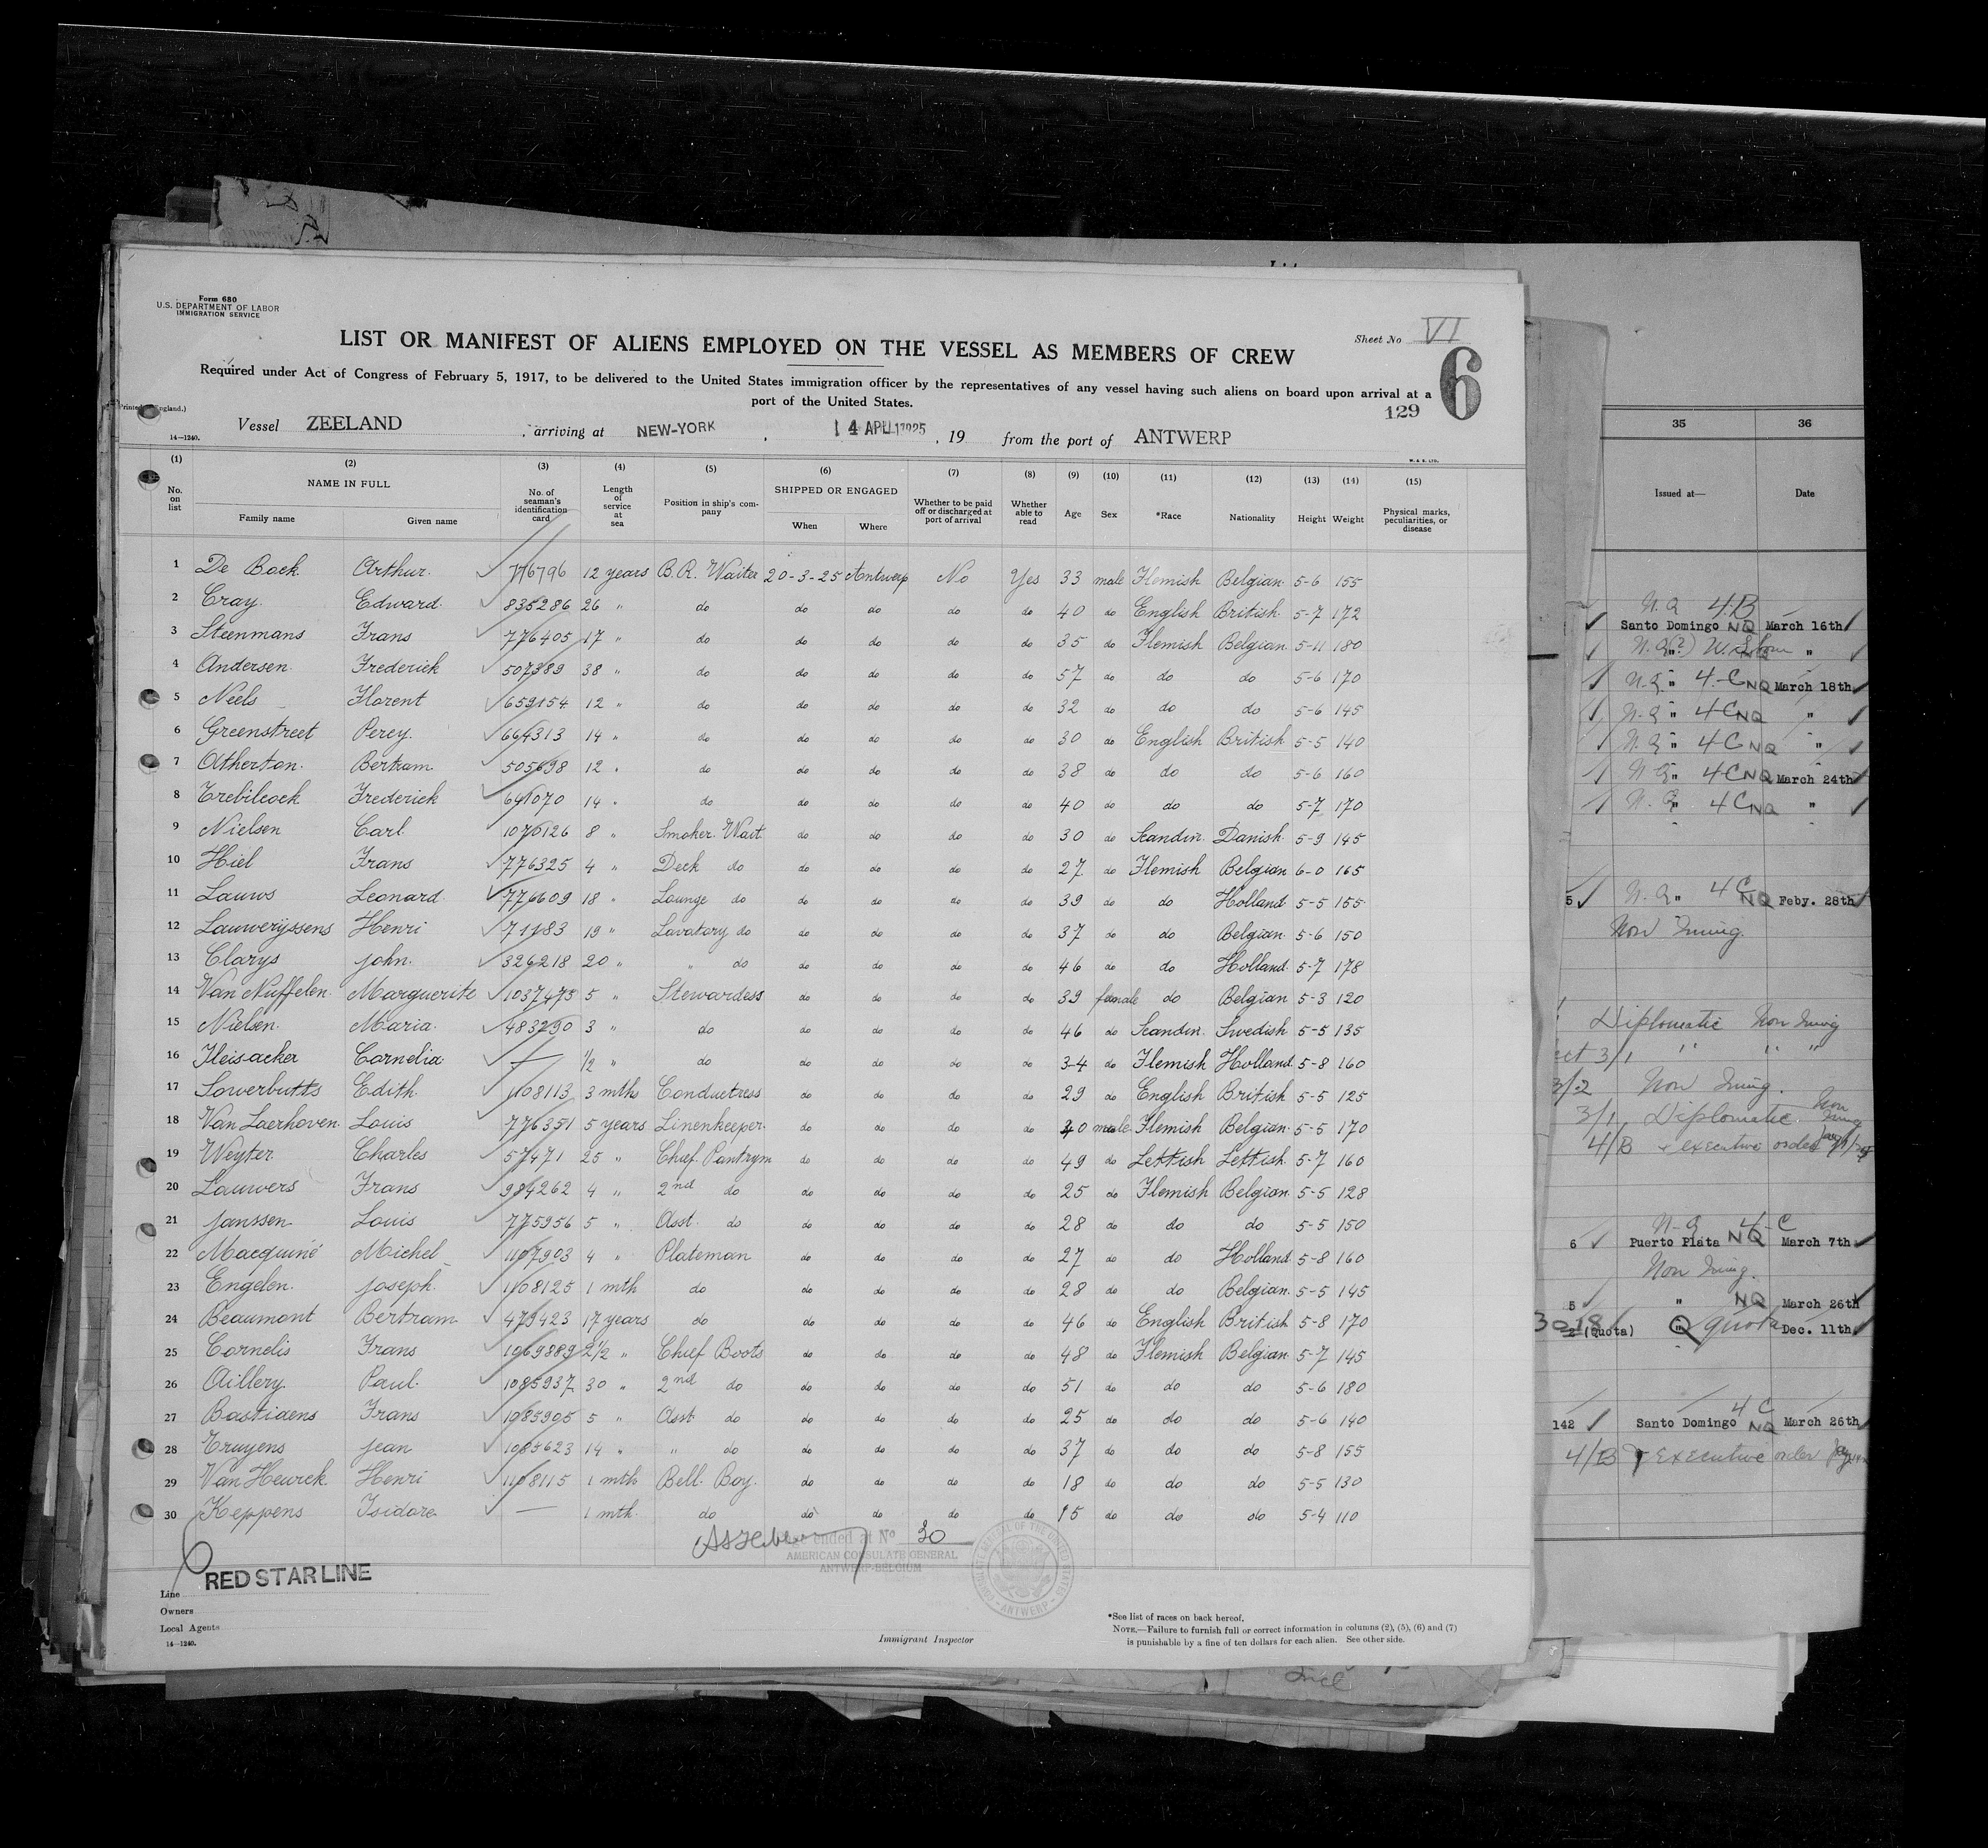 Form 680
U.S. DEPARTMENT OF LABOR
IMMIGRATION SERVICE
Sheet No VI
LIST OR MANIFEST OF ALIENS EMPLOYED ON THE VESSEL AS MEMBERS OF CREW
6
Required under Act of Congress of February 5, 1917, to be delivered to the United States immigration officer by the representatives of any vessel having such aliens on board upon arrival at a
port of the United States.
129
14—1240.
Vessel ZEELAND , arriving at NEW-YORK , 14 APL 1925 , 19 from the port of ANTWERP
W. & S. LTD.
(1) (2) (3) (4) (5) (6) (7) (8) (9) (10) (11) (12) (13) (14) (15)
No. on list NAME IN FULL Family name Given name No. of seaman's identification card Length of service at sea Position in ship's company SHIPPED OR ENGAGED When Where Whether to be paid off or discharged at port of arrival Whether able to read Age Sex *Race Nationality Height Weight Physical marks, peculiarities, or disease
1 De Bock Arthur. 776796 12 years B.R. Waiter 20-3-25 Antwerp No Yes 33 male Flemish Belgian 5-6 155
2 Cray. Edward. 835286 26 " do do do do do 40 do English British 5-7 172
3 Steenmans Frans 776405 17 " do do do do do 35 do Flemish Belgian 5-11 180
4 Andersen Frederick 507389 38 " do do do do do 57 do do do 5-6 170
5 Neels Florent 659154 12 " do do do do do 32 do do do 5-6 145
6 Greenstreet Percy. 664313 14 " do do do do do 30 do English British 5-5 140
7 Atherton. Bertram 505698 12 " do do do do do 38 do do do 5-6 160
8 Trebilcock Frederick 641070 14 " do do do do do 40 do do do 5-7 170
9 Nielsen Carl. 1076126 8 " Smoker Wait. do do do do 30 do Scandin. Danish. 5-9 145
10 Hiel Frans 776325 4 " Deck do do do do do 27 do Flemish Belgian 6-0 165
11 Lauws Leonard 776609 18 " Lounge do do do do do 39 do do Holland 5-5 155
12 Lauweryssens Henri 71183 19 " Lavatory do do do do do 37 do do Belgian 5-6 150
13 Clarys John. 326218 20 " " do do do do do 46 do do Holland 5-7 178
14 Van Nuffelen Marguerite 1037473 5 " Stewardess do do do do 39 female do Belgian 5-3 120
15 Nielsen. Maria. 483290 3 " do do do do do 46 do Scandin. Swedish 5-5 135
16 Fleisacker Cornelia — 1/2 " do do do do do 34 do Flemish Holland 5-8 160
17 Sowerbutts Edith. 1108113 3 mths Conductress do do do do 29 do English British 5-5 125
18 Van Laerhoven Louis 776351 5 years Linenkeeper. do do do do 30 male Flemish Belgian 5-5 170
19 Weyter Charles 57471 25 " Chief Pantrym do do do do 49 do Lettish Lettish 5-7 160
20 Lauwers Frans 984262 4 " 2nd do do do do do 25 do Flemish Belgian 5-5 128
21 Janssen Louis 775956 5 " Asst. do do do do do 28 do do do 5-5 150
22 Macquiné Michel 1107903 4 " Plateman do do do do 27 do do Holland 5-8 160
23 Engelen. Joseph. 1108125 1 mth do do do do do 28 do do Belgian. 5-5 145
24 Beaumont Bertram 479423 17 years do do do do do 46 do English British 5-8 170
25 Cornelis Frans 1069889 2 1/2 " Chief Boots do do do do 48 do Flemish Belgian 5-7 145
26 Aillery Paul. 1085937 30 " 2nd do do do do do 51 do do do 5-6 180
27 Bastiaens Frans 1085905 5 " Asst do do do do do 25 do do do 5-6 140
28 Truyens Jean 1085623 14 " " do do do do do 37 do do do 5-8 155
29 Van Heurck Henri 1108115 1 mth Bell Boy. do do do do 18 do do do 5-5 130
30 Keppens Isidore — 1 mth. do do do do do 15 do do do 5-4 110
ended at No 30
AMERICAN CONSULATE GENERAL
ANTWERP-BELGIUM
Line RED STAR LINE
Owners
Local Agents
14—1240.
Immigrant Inspector
*See list of races on back hereof.
NOTE.—Failure to furnish full or correct information in columns (2), (5), (6) and (7)
is punishable by a fine of ten dollars for each alien. See other side.
35 36
Issued at— Date
N.Q 4B
Santo Domingo NQ March 16th
" "
N.Q " 4-C NQ March 18th
N.Q " 4C NQ "
N.Q " 4C NQ "
N.Q " 4C NQ March 24th
N.Q " 4C NQ "
5 N.Q " 4C NQ Feby. 28th
Non Immig.
Diplomatic Non Immig
3/1 " " "
3/2 Non Immig.
3/1 Diplomatic Non Immig
4/B executive order
N-Q 4-C
6 Puerto Plata NQ March 7th
Non Immig.
5 " NQ March 26th
3018 2 (Quota) " Q quota Dec. 11th
4C
142 Santo Domingo NQ March 26th
4/B Executive order